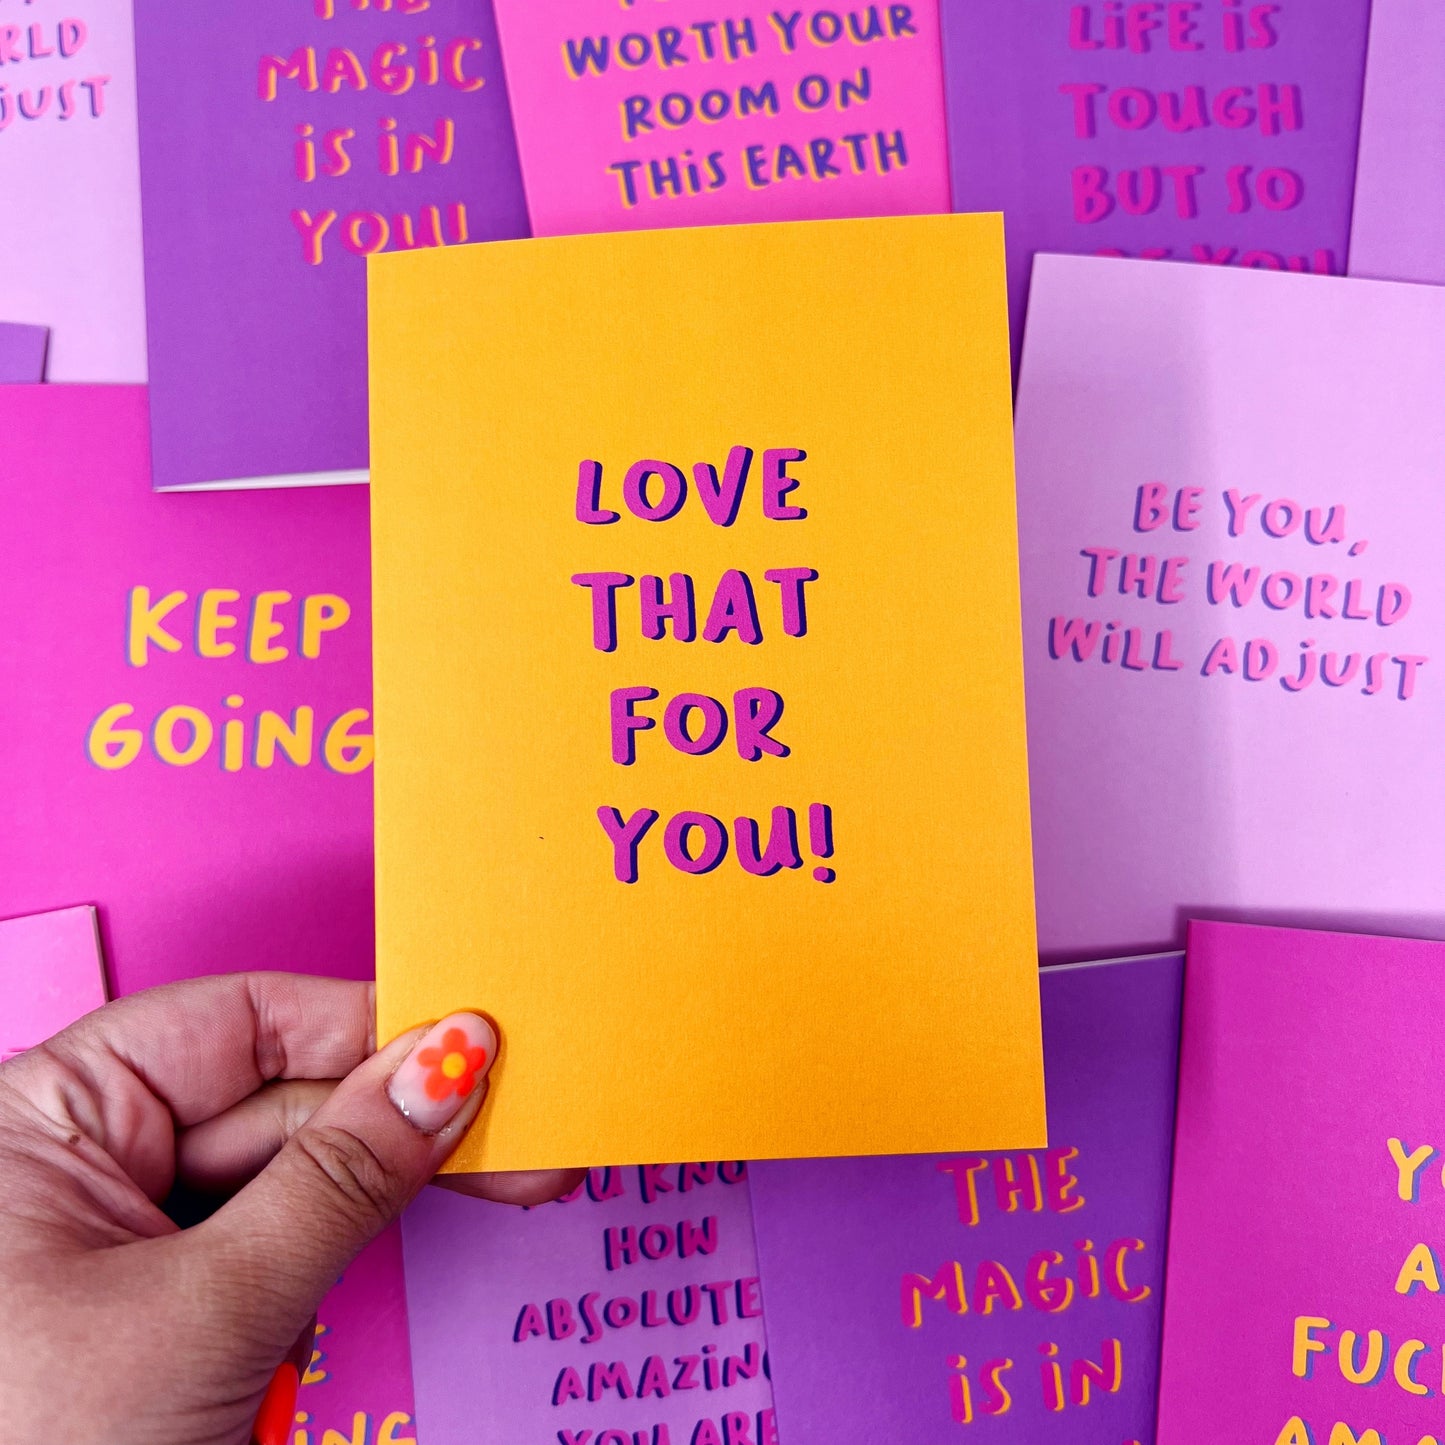 RLD
JUST
MAGiC
iS iN
YOU!
WORTH YOUR
ROOM ON
THiS EARTH
LiFE iS
TOUGH
BUT SO
YOU
KEEP
GOiNG
LOVE
THAT
FOR
YOU!
BE YOU,
THE WORLD
WiLL ADJUST
HOW
ABSOLUTE
AMAZiN
YOU ARE
THE
MAGiC
iS iN
Y
A
FUC
iNG